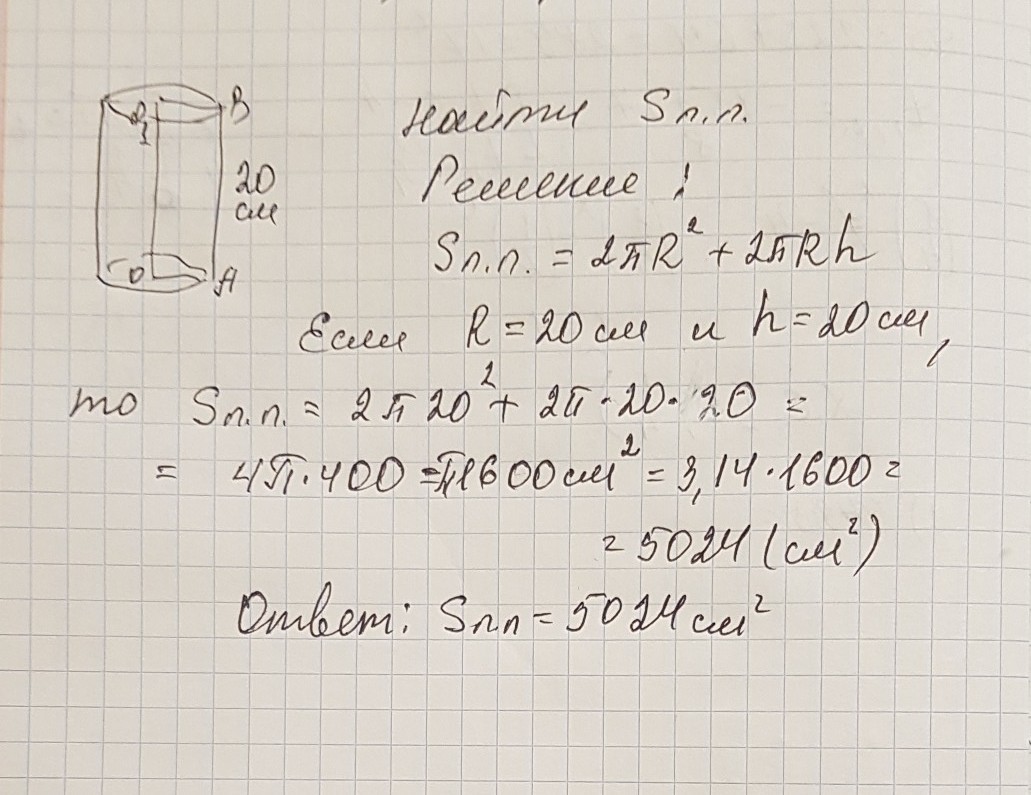 Найти Sп.п.
B
O1
20
см
Решение:
Sп.п. = 2πR² + 2πRh
O A
Если R = 20 см и h = 20 см,
то Sп.п. = 2π 20² + 2π · 20 · 20 =
= 4π · 400 = π1600 см² = 3,14 · 1600 =
= 5024 (см²)
Ответ: Sпп = 5024 см²